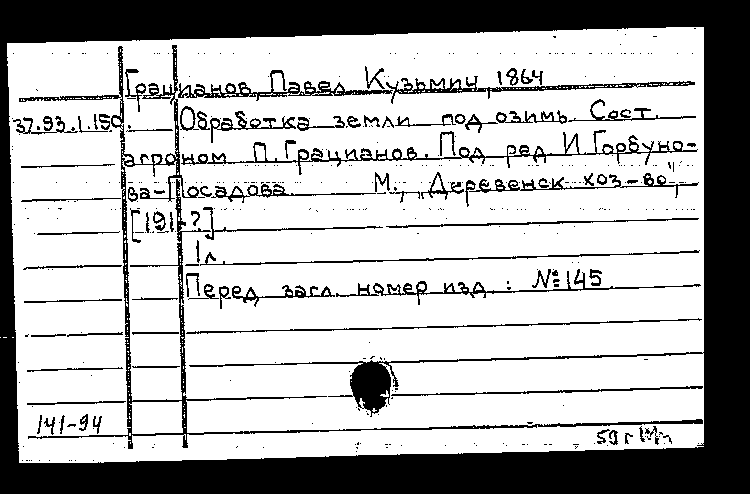 Грацианов, Павел Кузьмич, 1864
37.93.1.150. Обработка земли под озимь. Сост.
агроном П. Грацианов. Под ред И Горбуно-
ва-Посадова М., „Деревенск хоз-во",
[191-?].
1л.
Перед загл. номер изд.: №145
141-94
59 г